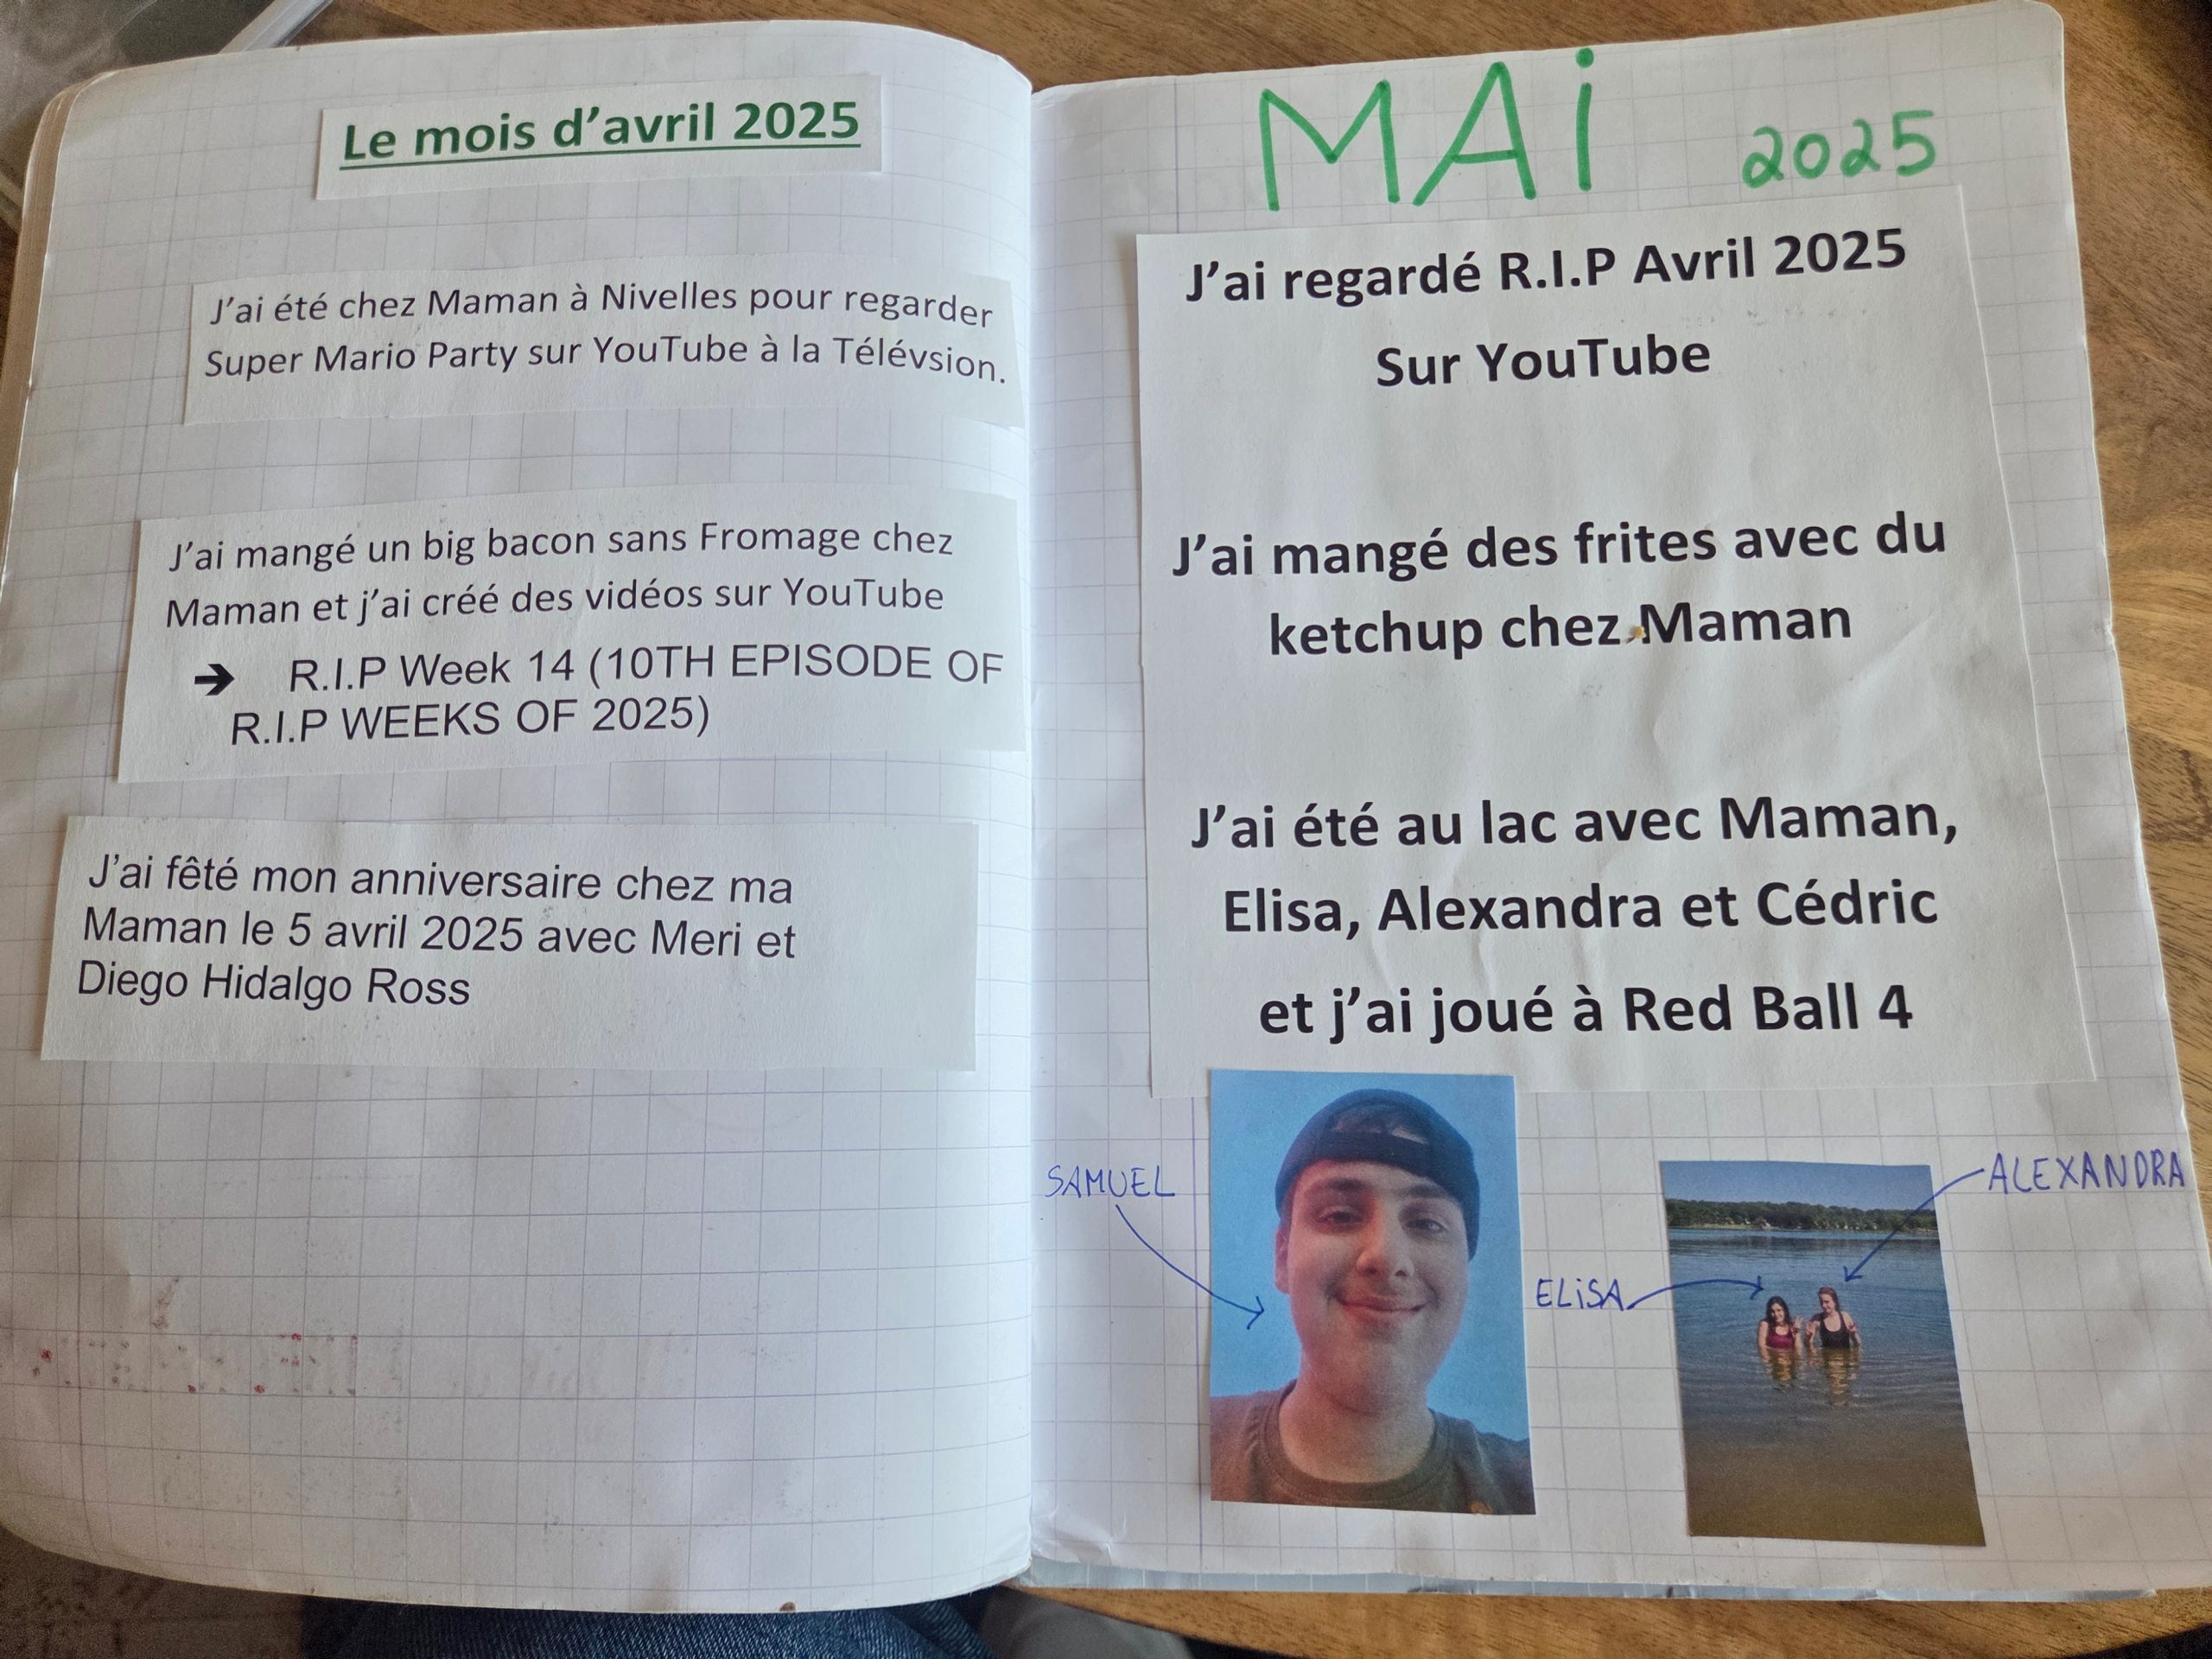 Le mois d'avril 2025
J'ai été chez Maman à Nivelles pour regarder
Super Mario Party sur YouTube à la Télévsion.
J'ai mangé un big bacon sans Fromage chez
Maman et j'ai créé des vidéos sur YouTube
➔ R.I.P Week 14 (10TH EPISODE OF
R.I.P WEEKS OF 2025)
J'ai fêté mon anniversaire chez ma
Maman le 5 avril 2025 avec Meri et
Diego Hidalgo Ross
MAi 2025
J'ai regardé R.I.P Avril 2025
Sur YouTube
J'ai mangé des frites avec du
ketchup chez Maman
J'ai été au lac avec Maman,
Elisa, Alexandra et Cédric
et j'ai joué à Red Ball 4
SAMUEL
ELiSA
ALEXANDRA